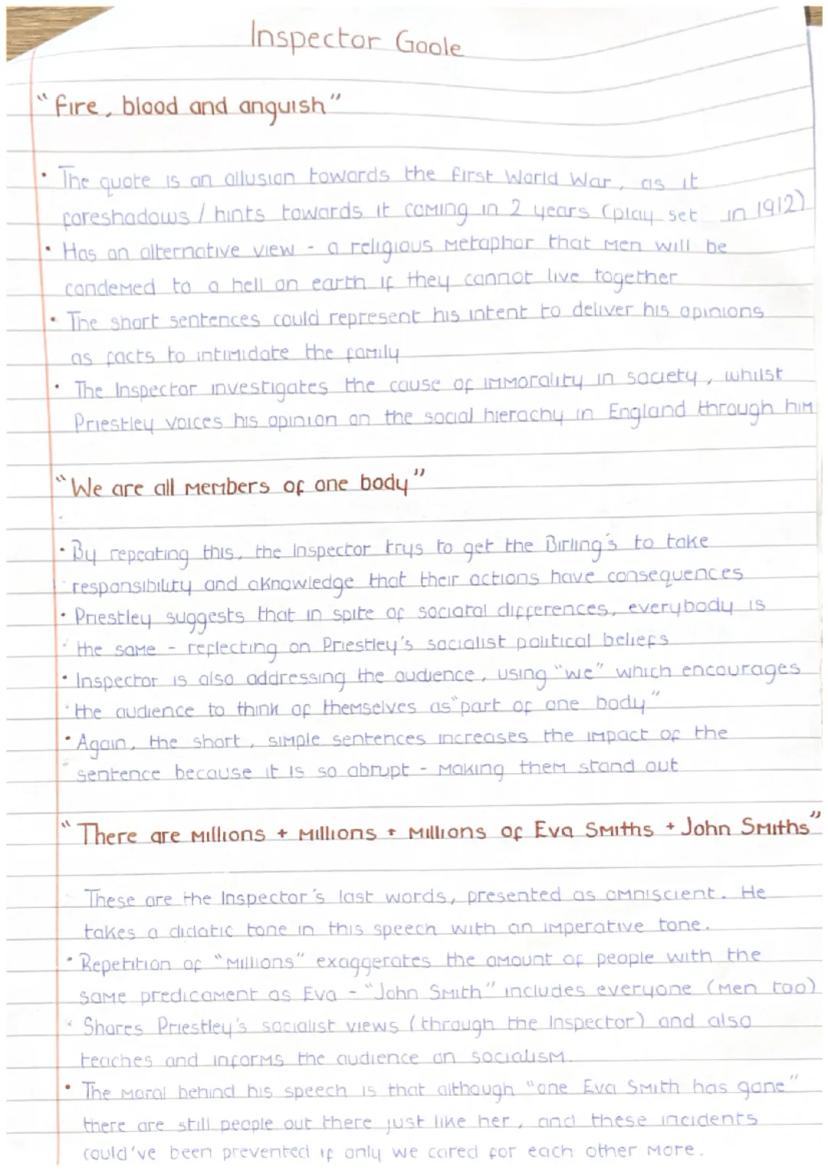 Inspector Goole
"Fire, blood and anguish"
• The quote is an allusion towards the First World War, as it
foreshadows / hints towards it coming in 2 years (play set in 1912)
• Has an alternative view - a religious metaphor that men will be
condemed to a hell on earth if they cannot live together
• The short sentences could represent his intent to deliver his opinions
as facts to intimidate the family
• The Inspector investigates the cause of immorality in society, whilst
Priestley voices his opinion on the social hierachy in England through him
"We are all members of one body"
• By repeating this, the Inspector trys to get the Birling's to take
responsibility and aknowledge that their actions have consequences
• Priestley suggests that in spite of sociatal differences, everybody is
the same - reflecting on Priestley's socialist political beliefs
• Inspector is also addressing the audience, using "we" which encourages
the audience to think of themselves as "part of one body"
• Again, the short, simple sentences increases the impact of the
sentence because it is so abrupt - making them stand out
"There are millions + millions + millions of Eva Smiths + John Smiths"
These are the Inspector's last words, presented as omniscient. He
takes a didatic tone in this speech with an imperative tone.
• Repetition of "millions" exaggerates the amount of people with the
same predicament as Eva - "John Smith" includes everyone (men too)
• Shares Priestley's socialist views (through the Inspector) and also
teaches and informs the audience on socialism.
• The moral behind his speech is that although "one Eva Smith has gone"
there are still people out there just like her, and these incidents
could've been prevented if only we cared for each other more.